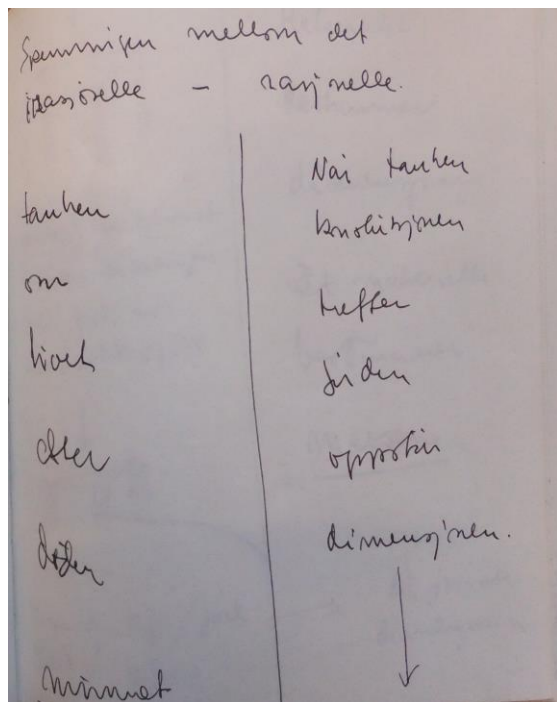 Spenningen mellom det
irrasjonelle – rasjonelle.
tanken
om
livet
etter
døden
minnet
Når tanken
treffer
jorden
oppstår
dimensjonen.